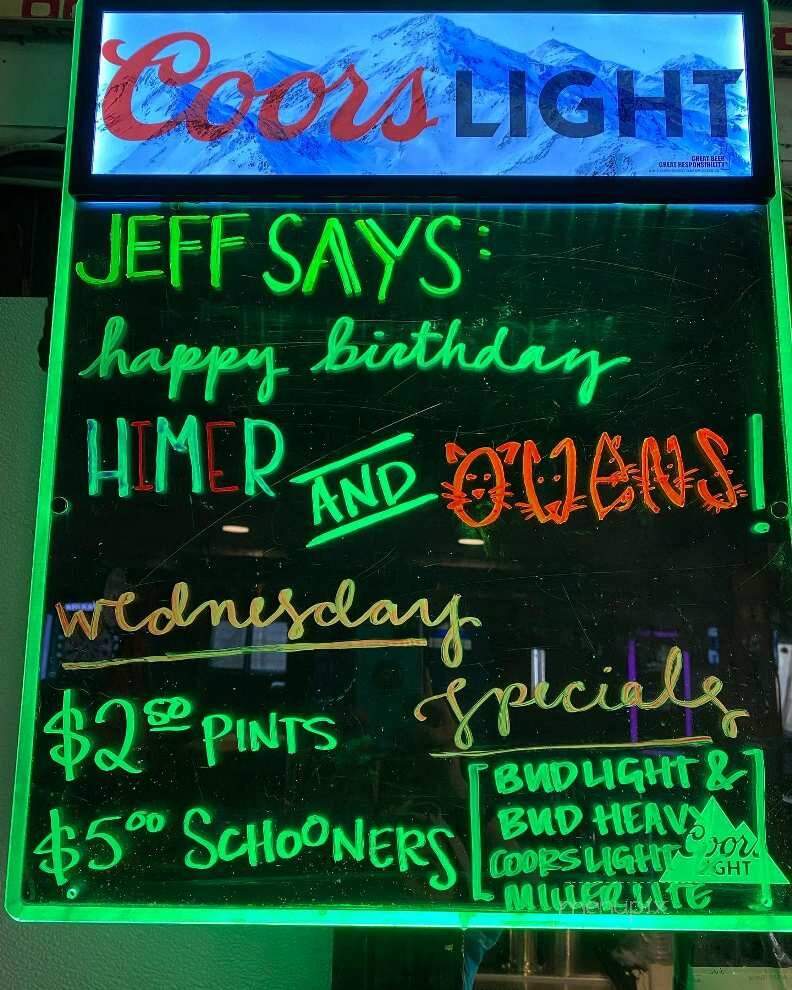 Coors LIGHT
GREAT BEER
GREAT RESPONSIBILITY
JEFF SAYS:
happy birthday
HIMER AND OWENS!
wednesday
specials
$2.50 PINTS
$5.00 SCHOONERS
BUD LIGHT &
BUD HEAVY
COORS LIGHT
MILLER LITE
Coors
LIGHT
menupix